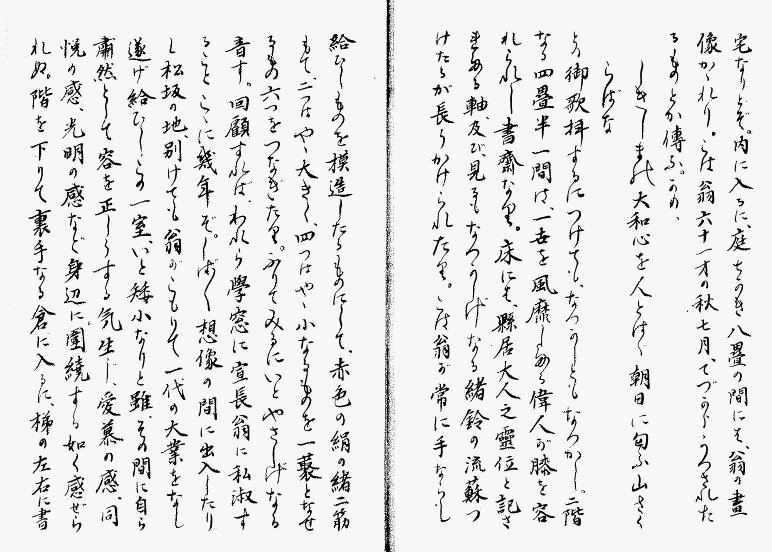 宅なりとぞ。内に入るに、庭ちかき八畳の間にも、翁の畫
像かゝれり。こは翁六十一才の秋七月、てづからうつされた
るものとか傳ふ。かの、
しきしまの大和心を人とはゞ朝日に匂ふ山さく
らばな
の御歌拝するにつけても、なつかしともなつかし。二階
なる四畳半一間は、一世を風靡しぬる偉人が膝を容
れられし書齋なり。床にも、縣居大人之靈位と記さ
れある軸、及び、見るもなつかしげなる緒鈴の流蘇つ
けたるが長くかけられたり。こは翁が常に手ならし
給ひしものを模造したるものにして、赤色の絹の緒二筋
もて、二つはやゝ大きく、四つはやゝ小なるものを一聚となせ
るもの六つをつなぎたり。ふりてみるにいとやさしげなる
音す。回顧すれば、われら學窓に宣長翁に私淑す
ること、こゝに幾年ぞ。しばしば想像の間に出入したり
し松坂の地、別けても翁がこもりて一代の大業をなし
遂げ給ひしこの一室、いと矮小なりと雖その間に自ら
肅然として容を正しうする気生じ、愛慕の感、同
悦の感、光明の感など身辺に圍繞する如く感ぜら
れぬ。階を下りて裏手なる倉に入るに、梯の左右に書